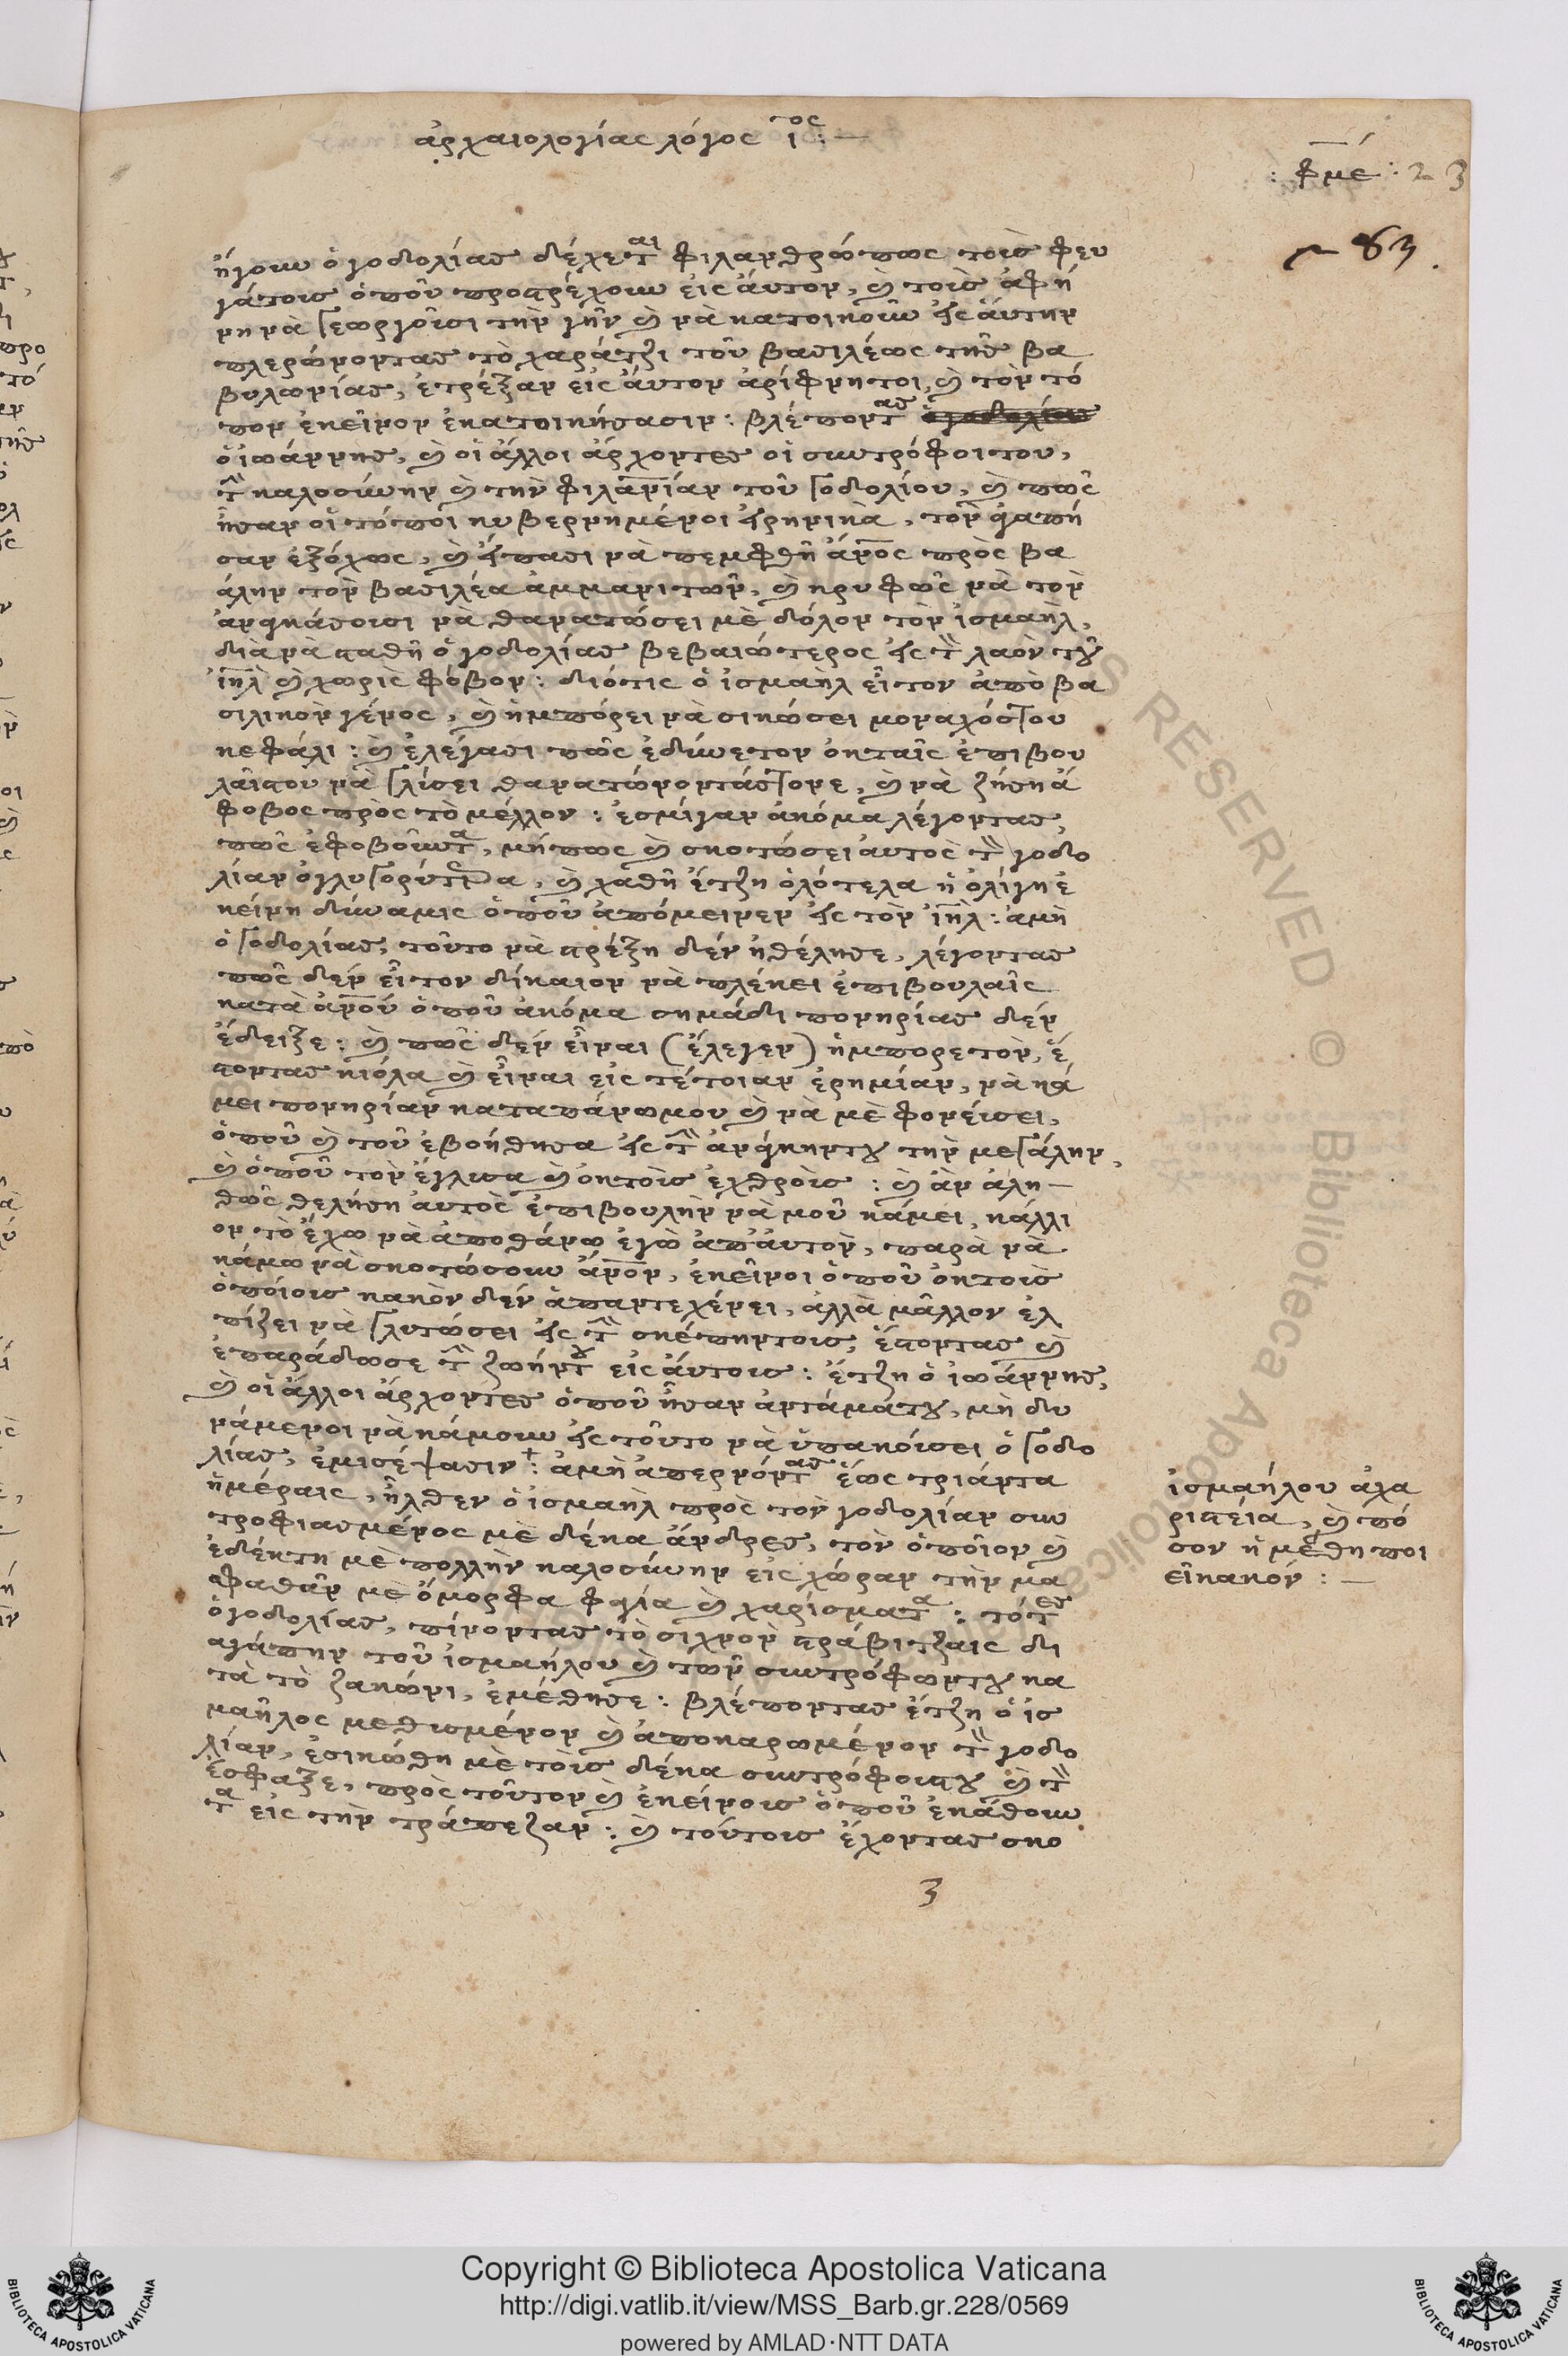 ἀρχαιολογίας λόγος ιος: —
: φμε : 23
83.
ἤγουν ὁ γοδολίας δέχεται φιλανθρώπως τοὺς φευ
γάτους ὁποῦ προστρέχουν εἰς αὐτὸν, καὶ τοὺς ἀφή
νη νὰ γεωργοῦσι τὴν γῆν καὶ νὰ κατοικοῦν εἰς αὐτὴν
πλερώνοντας τὸ χαράτζι τοῦ βασιλέως τῆς βα
βυλωνίας, ἐτρέξαν εἰς αὐτὸν ἀρίφνητοι, καὶ τὸν τό
πον ἐκεῖνον ἐκατοικήσασιν: βλέποντας
ὁ ἰωάννης, καὶ οἱ ἄλλοι ἄρχοντες οἱ συντρόφοι του,
τὴν καλοσύνην καὶ τὴν φιλανίαν τοῦ γοδολίου, καὶ πῶς
ἦσαν οἱ τόποι κυβερνημένοι εἰρηνικὰ, τὸν ἀγαπή
σαν ἐξόχως, καὶ εἴπασι νὰ πεμφθῆ ἄνος πρὸς βα
άλην τὸν βασιλέα ἀμμανιτῶν, καὶ κρυφῶς νὰ τὸν
ἀναγκάσουσι νὰ θανατώσει μὲ δόλον τὸν ἰσμαὴλ,
διὰ νὰ σταθῆ ὁ γοδολίας βεβαιώτερος εἰς τὸν λαὸν τοῦ
ἰηλ καὶ χωρὶς φόβον: διότις ὁ ἰσμαὴλ εἶτον ἀπὸ βα
σιλικὸν γένος, καὶ ἠμπόρει νὰ σικώσει μοναχόστου
κεφάλι: καὶ ἐλέγασι πῶς ἐδύνετον ὀκταῖς ἐπιβου
λαῖςτου νὰ γλύσει θανατώνοντάστονε, καὶ νὰ ζήση ἄ
φοβος πρὸς τὸ μέλλον: ἐσμίγαν ἀκόμα λέγοντας,
πῶς ἐφοβοῦντα, μήπως καὶ σκοτώσει αὐτὸς τὸν γοδο
λίαν ὀγλυγορύτερα, καὶ χαθῆ ἔτζη ὁλότελα ἡ ὀλίγη ἐ
κείνη δύναμις ὁποῦ ἀπόμεινεν εἰς τὸν ἰηλ: ἀμὴ
ὁ γοδολίας, τοῦτο νὰ πρέξη δὲν ἠθέλησε, λέγοντας
πῶς δὲν εἶτον δίκαιον νὰ πλέκει ἐπιβουλαῖς
κατὰ ἀνοῦ ὁποῦ ἀκόμα σημάδι πονηρίας δὲν
ἔδειξε: καὶ πῶς δὲν εἶναι (ἔλεγεν) ἠμπορετὸν, ἔ
στοντας κιόλα καὶ εἶναι εἰς τέτοιαν ἐρημίαν, νὰ κά
μει πονηρίαν καταπάνωμου καὶ νὰ μὲ φονεύσει,
ὁποῦ καὶ τοῦ ἐβοήθησα εἰς τὴν ἀνάγκηντου τὴν μεγάλην,
καὶ ὁποῦ τὸν ἔγλυσα καὶ ὀκτοὺς ἐχθροὺς: καὶ ἂν ἀλη-
θῶς θελήση αὐτὸς ἐπιβουλὴν νὰ μοῦ κάμει, κάλλι
ον τὸ ἔχω νὰ ἀποθάνω ἐγὼ ἀπ' αὐτὸν, παρὰ νὰ
κάμω νὰ σκοτώσουν ἄνον, ἐκεῖνοι ὁποῦ ὀκτοὺς
ὁποίους κακὸν δὲν ἀπαντεχένει, ἀλλὰ μᾶλλον ἐλ
πίζει νὰ γλυτώσει εἰς τὴν σκέπηντους, ἔστοντας καὶ
ἐπαράδωσε τὴν ζωήντου εἰς αὐτοὺς: ἔτζη ὁ ἰωάννης,
καὶ οἱ ἄλλοι ἄρχοντες ὁποῦ ἦσαν ἀντάματου, μὴ δυ
νάμενοι νὰ κάμουν εἰς τοῦτο νὰ ὑπακούσει ὁ γοδο
λίας, ἐμισέψασιν+: ἀμὴ ἀπερνόντας ἕως τριάντα
ἡμέραις, ἦλθεν ὁ ἰσμαὴλ πρὸς τὸν γοδολίαν συν
τροφιασμένος μὲ δέκα ἄνδρες, τὸν ὁποῖον καὶ
ἐδέκτη μὲ πολλὴν καλοσύνην εἰς χώραν τὴν μα
σφαθᾶν μὲ ὄμορφα φαγία καὶ χαρίσματα: τότες
ὁ γοδολίας, πίνοντας τὸ συχνὸν στράβιτζαις δι
αγάπην τοῦ ἰσμαήλου καὶ τῶν συντρόφωντου κα
τὰ τὸ ζακώνι, ἐμέθησε: βλέποντας ἔτζη ὁ ἰσ
μαῆλος μεθυσμένον καὶ ἀποκαρωμένον τὸν γοδο
λίαν, ἐσικώθη μὲ τοὺς δέκα συντρόφουςτου καὶ τὸν
ἔσφαξε, πρὸς τοῦτον καὶ ἐκείνους ὁποῦ ἐκάθουν
τα εἰς τὴν τράπεζαν: καὶ τούτους ἔχοντας σκο
3
ἰσμαήλου ἀχα
ριστεία, καὶ πό
σον ἡ μέθη ποι
εῖ κακόν: —
Copyright © Biblioteca Apostolica Vaticana
http://digi.vatlib.it/view/MSS_Barb.gr.228/0569
powered by AMLAD·NTT DATA
BIBLIOTECA APOSTOLICA VATICANA
BIBLIOTECA APOSTOLICA VATICANA